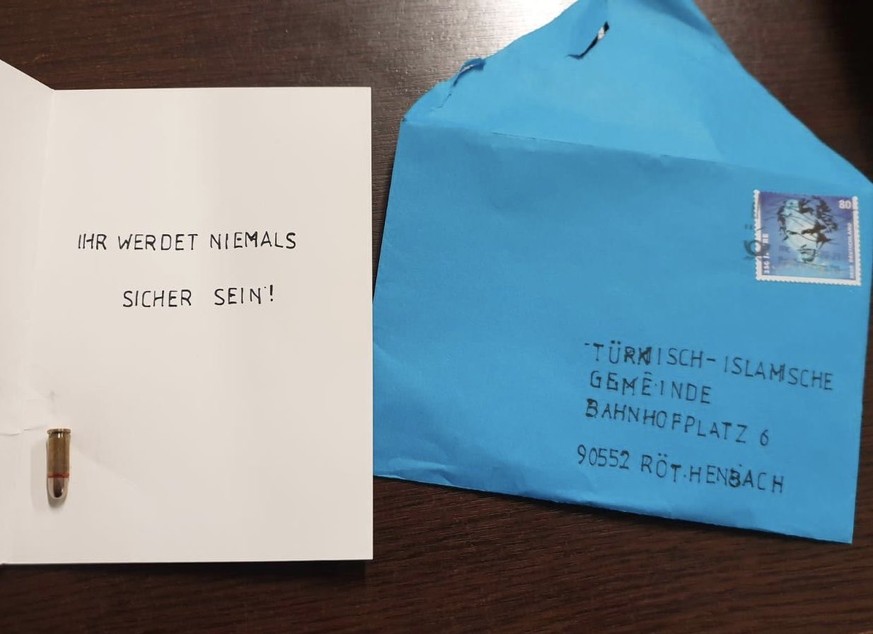 IHR WERDET NIEMALS
SICHER SEIN!
80
TÜRKISCH-ISLAMISCHE
GEMEINDE
BAHNHOFPLATZ 6
90552 RÖTHENBACH